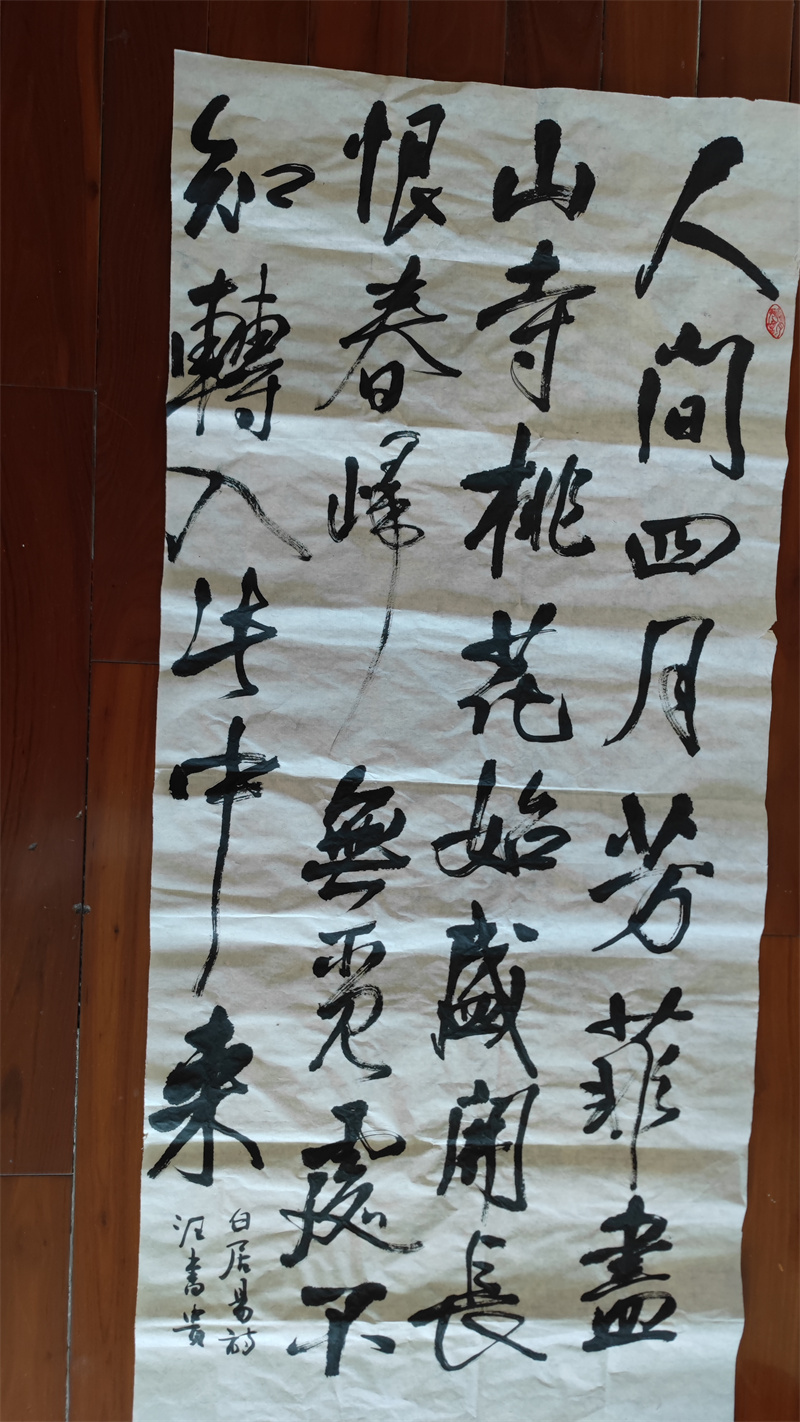 人間四月芳菲盡
山寺桃花始盛開長
恨春歸無覓處不
知轉入此中來
白居易詩
汪書貴